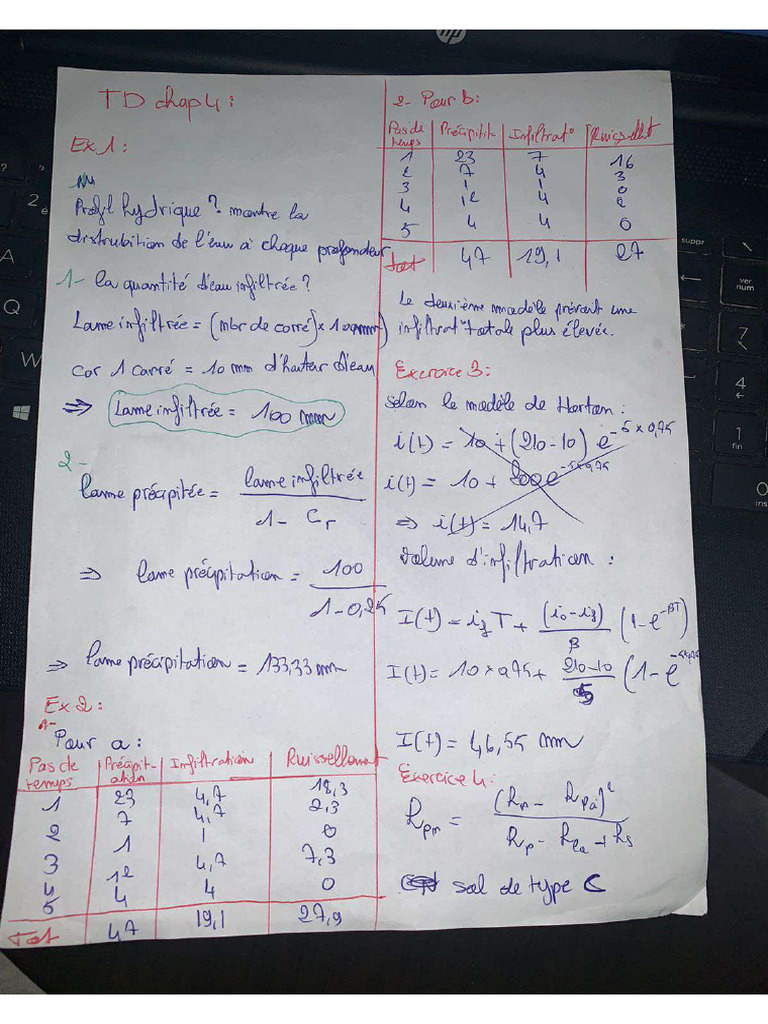 TD chap 4 :
Ex 1 :
Profil hydrique ? montre la
distrubition de l'eau à chaque profondeur
1- la quantité d'eau infiltrée ?
Lame infiltrée = (nbr de carré) × 10 mm)
car 1 carré = 10 mm d'hauteur d'eau
⇒ Lame infiltrée = 100 mm
2-
lame précipitée = lame infiltrée / 1 - Cr
⇒ lame précipitation = 100 / 1 - 0,25
⇒ lame précipitation = 133,33 mm
Ex 2 :
Pour a :
Pas de temps Précipitation Infiltration Ruissellement
1 23 4,7 18,3
2 7 4,7 2,3
3 1 1 0
4 12 4,7 7,3
5 4 4 0
Tot 47 19,1 27,9
2- Pour b :
Pas de temps Précipitat- Infiltrat° Ruissellet
1 23 7 16
2 7 4 3
3 1 1 0
4 12 4 2
5 4 4 0
tot 47 19,1 27
Le deuxième modèle prévoit une
infiltrat° totale plus élevée.
Exercice 3 :
Selon le modèle de Horton :
i(t) = 10 + (210 - 10) e^-5 × 0,75
i(t) = 10 + 200 e^-5×0,75
⇒ i(t) = 14,7
Volume d'infiltration :
I(t) = if T + (i0 - if) / β (1 - e^-βT)
I(t) = 10 × 0,75 + 210-10 / 5 (1 - e^-5×0,75
I(t) = 46,55 mm
Exercice 4 :
hpn = (hp - hpa)² / hp - hpa + hs
sol de type C